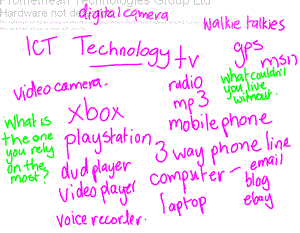 Promethean Technologies Group Ltd
Hardware not de
digital camera
walkie talkies
ICT Technology
tv
gps
msn
video camera.
radio
what couldn't
you live
without.
xbox
mp3
What is
the one
you rely
on the
most?
playstation
mobile phone
3 way phone line
dvd player
computer – email
blog
ebay
video player
laptop
voice recorder.